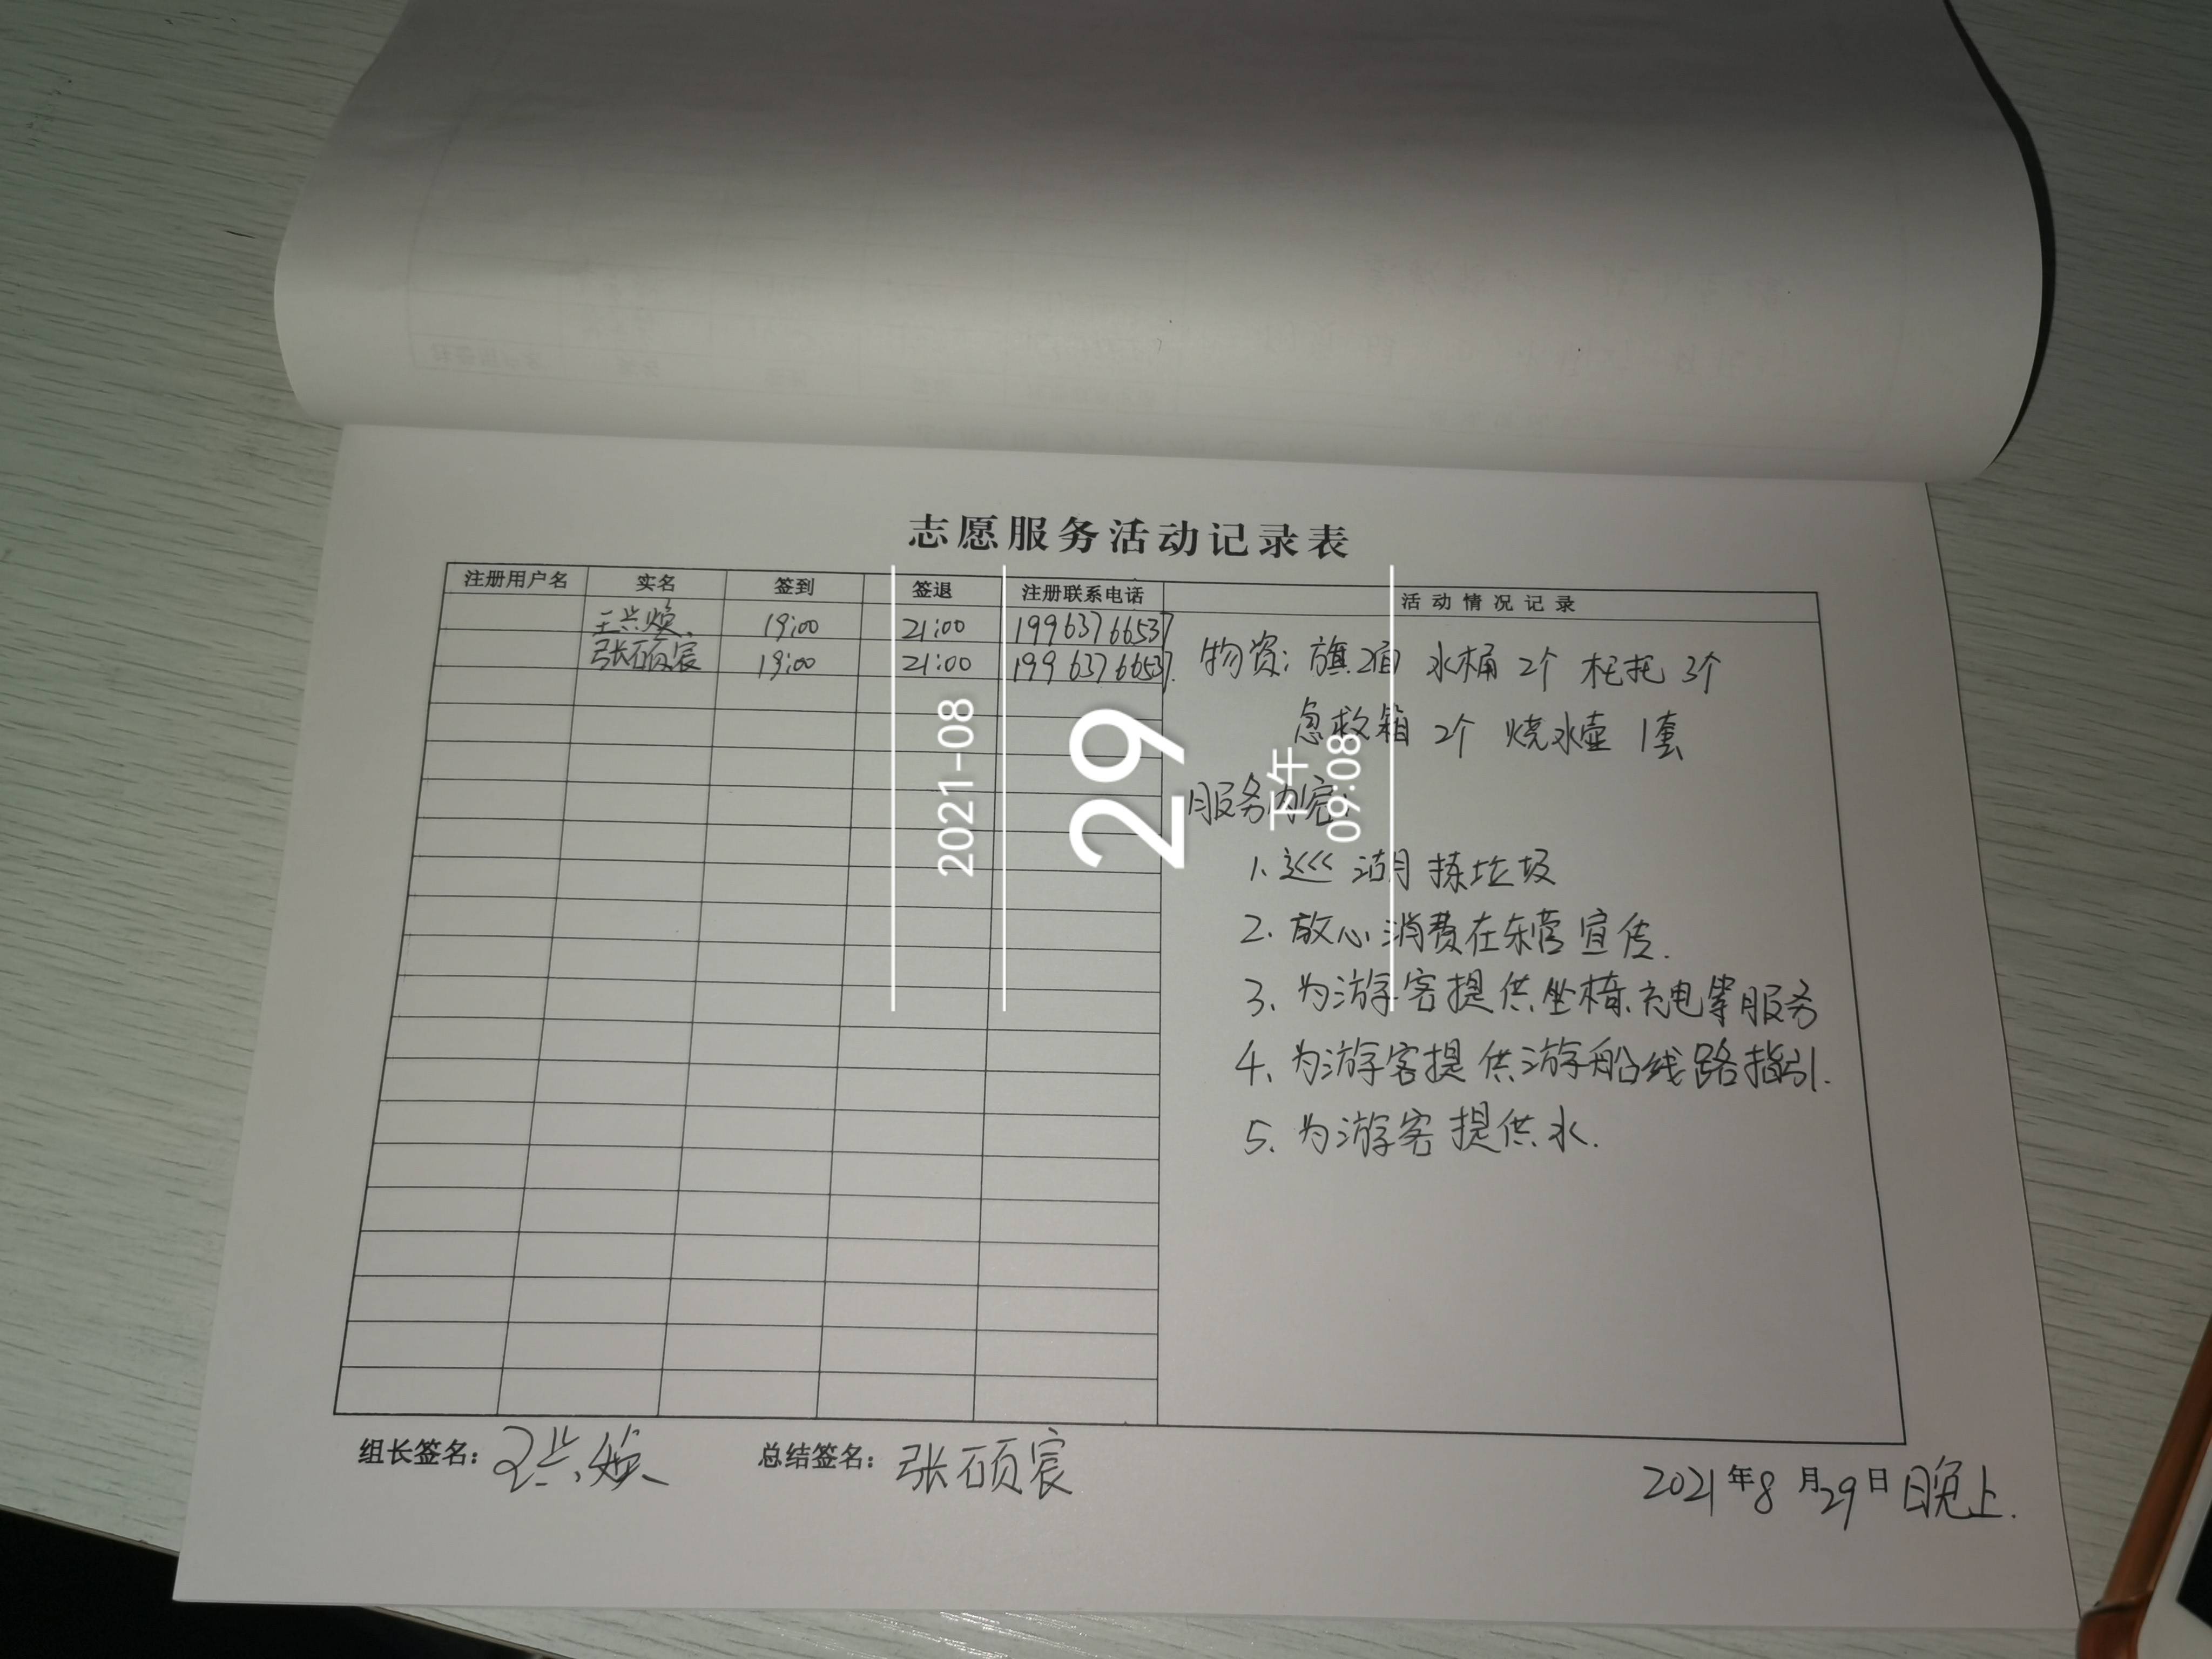 志愿服务活动记录表
注册用户名 实名 签到 签退 注册联系电话 活动情况记录
王兴焕 19:00 21:00 19963766537
张硕宸 19:00 21:00 19963766537
物资：旗2面 水桶2个 枕托3个
急救箱2个 烧水壶1套
服务内容：
1、巡湖捡垃圾
2、放心消费在东营宣传.
3、为游客提供坐椅、充电等服务
4、为游客提供游船线路指引.
5、为游客提供水.
组长签名：王兴焕 总结签名：张硕宸
2021年8月29日晚上.
2021-08
29
下午
09:08